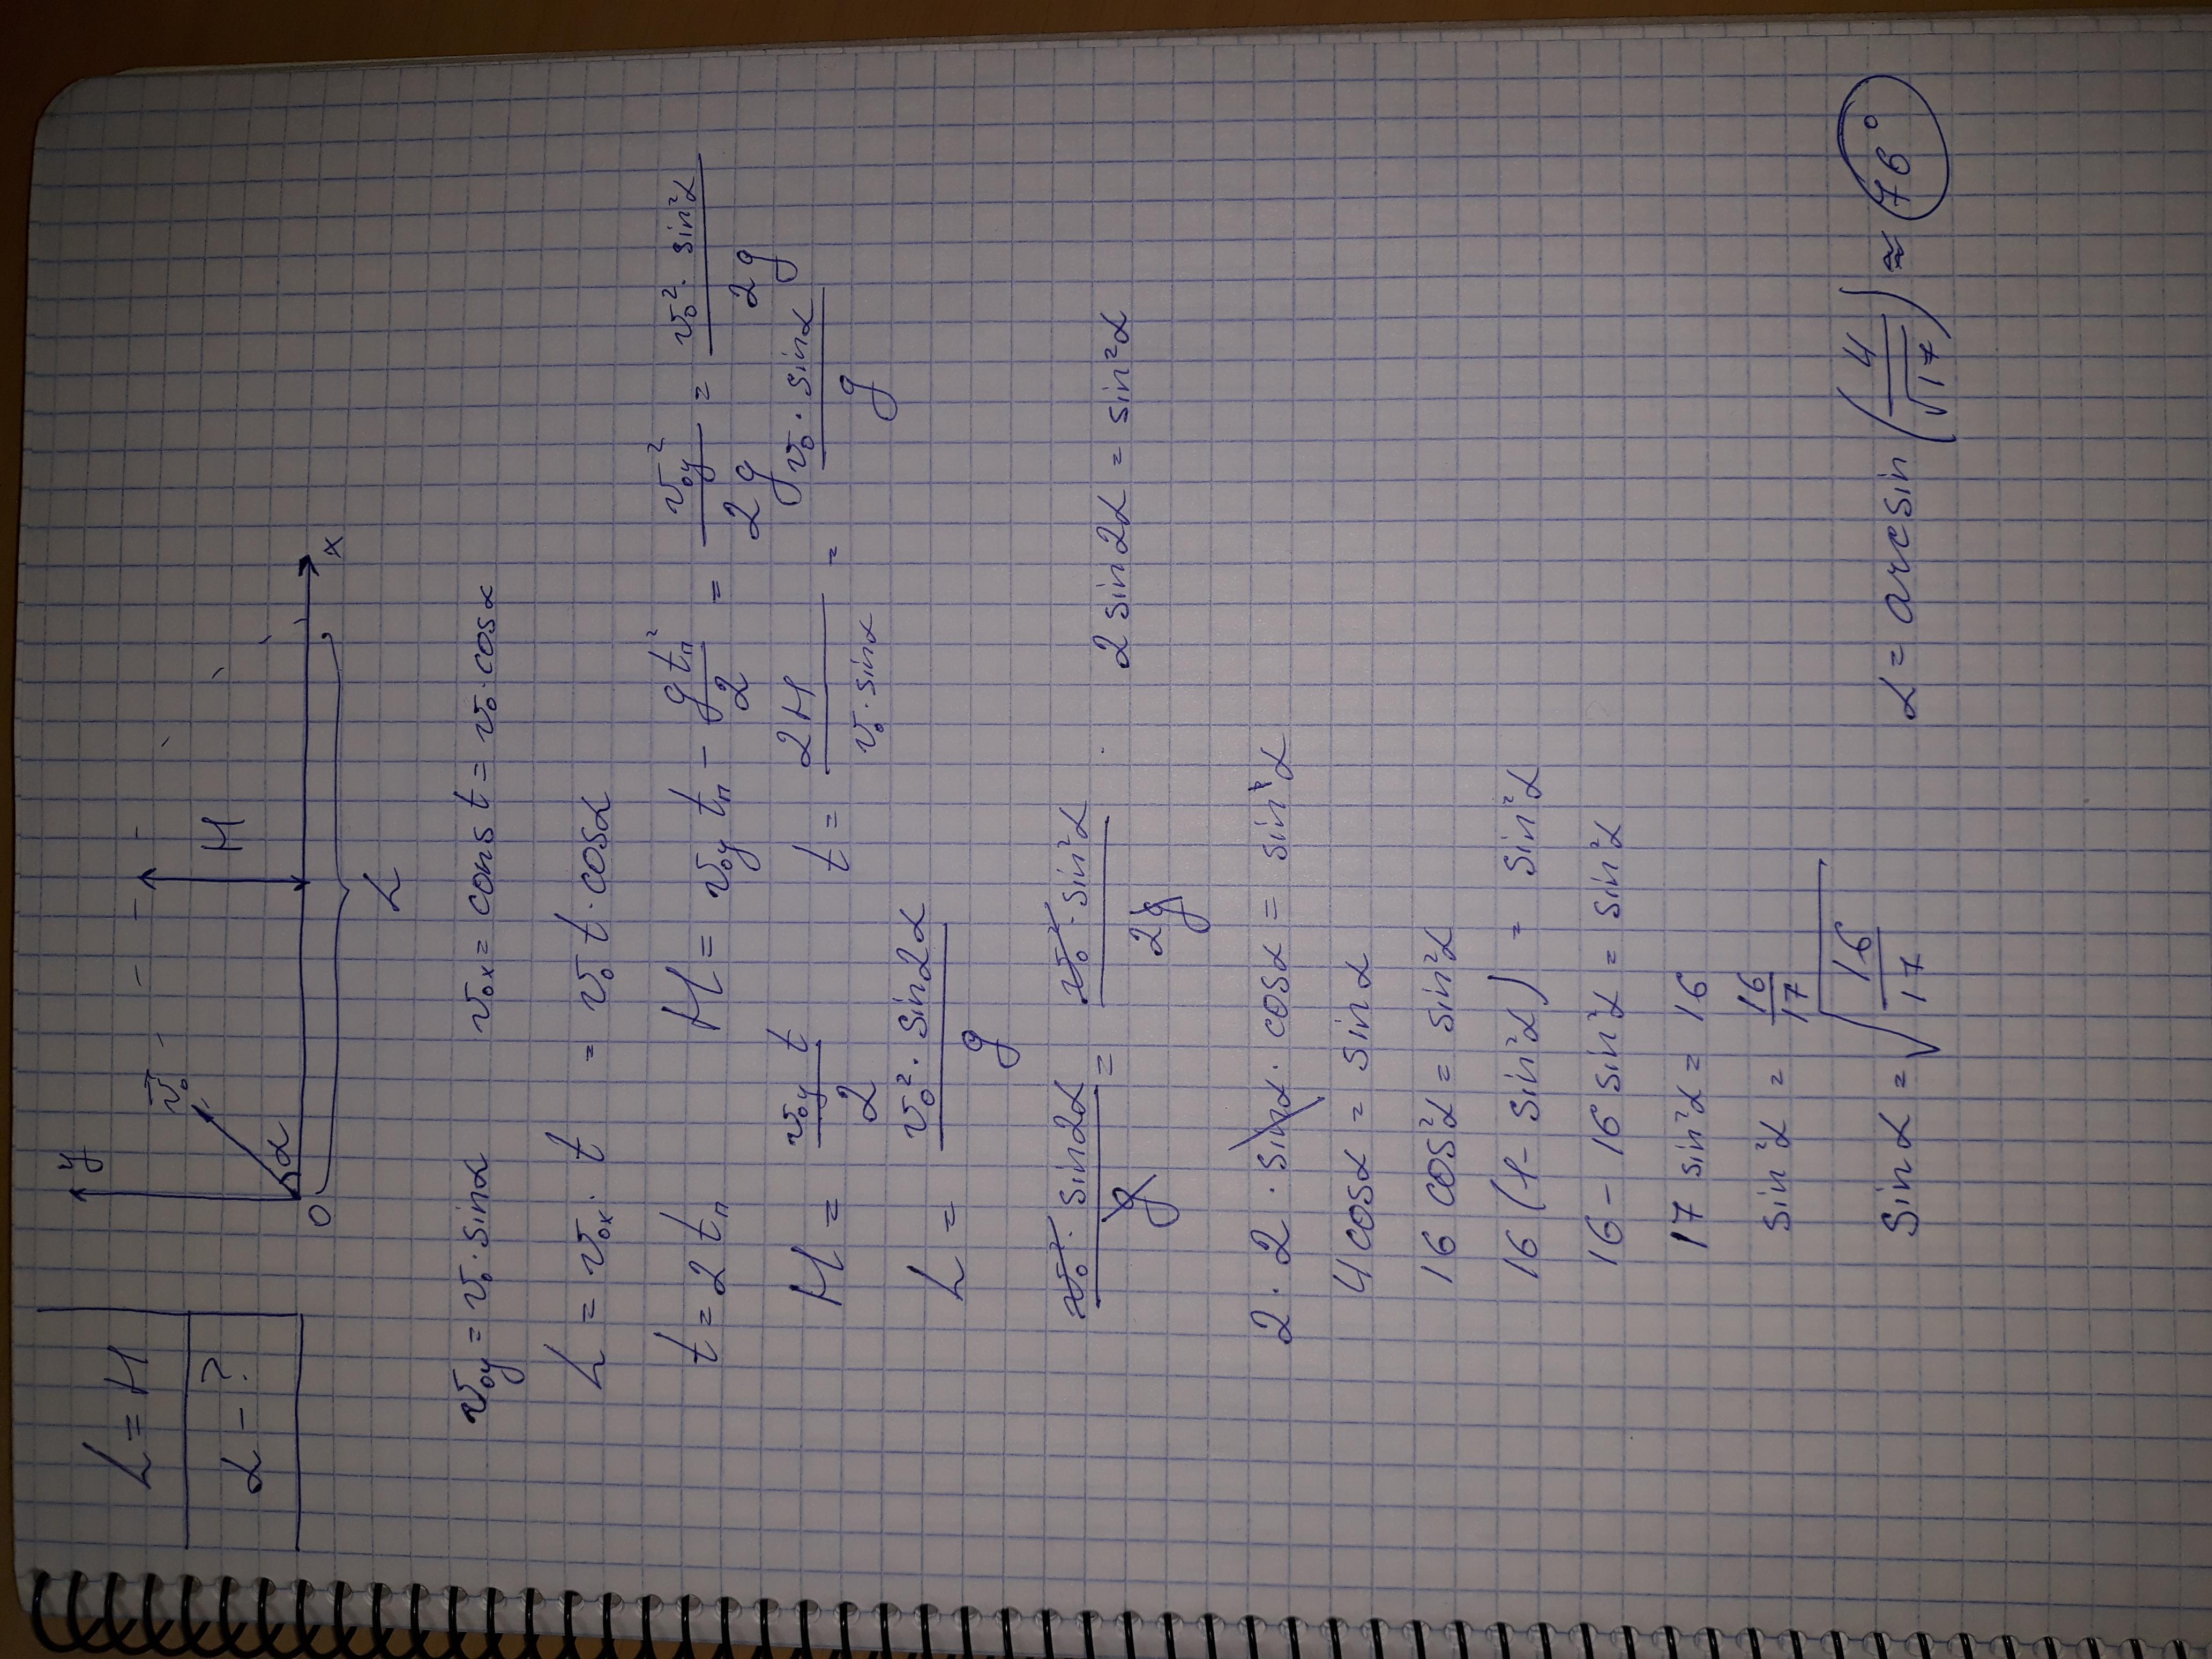 L = H
α - ?
y
v⃗₀
α
0
H
x
L
v₀y = v₀ · sinα    v₀x = const = v₀ · cosα
L = v₀x · t = v₀ t · cosα
t = 2 tп    H = v₀y tп - g tп²/2 = v₀y²/2g = v₀² · sin²α/2g
H = v₀y t/2    t = 2H/v₀ · sinα = v₀ · sinα/g
L = v₀² · sin2α/g
v₀² · sin2α/g = v₀² · sin²α/2g    2 sin2α = sin²α
2 · 2 · sinα · cosα = sin²α
4cosα = sinα
16 cos²α = sin²α
16 (1 - sin²α) = sin²α
16 - 16 sin²α = sin²α
17 sin²α = 16
sin²α = 16/17
sinα = √(16/17)    α = arcsin (4/√17) ≈ 76°